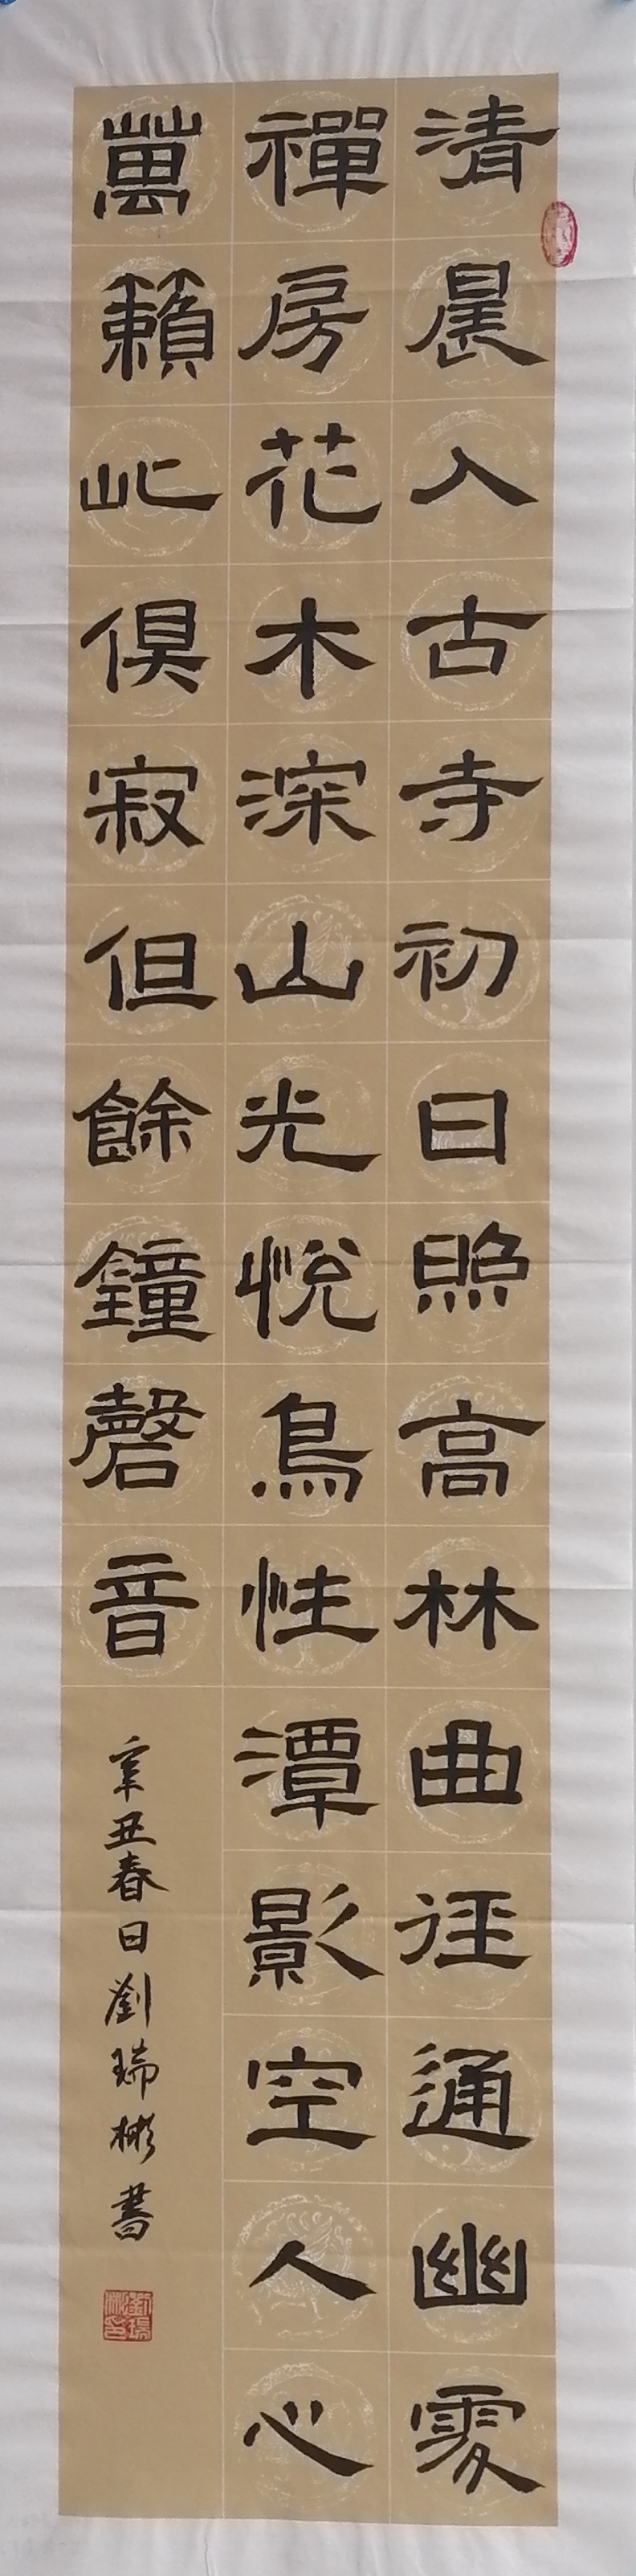 清晨入古寺初日照高林曲径通幽處
禪房花木深山光悅鳥性潭影空人心
萬籟此俱寂但餘鐘磬音
辛丑春日劉瑞彬書